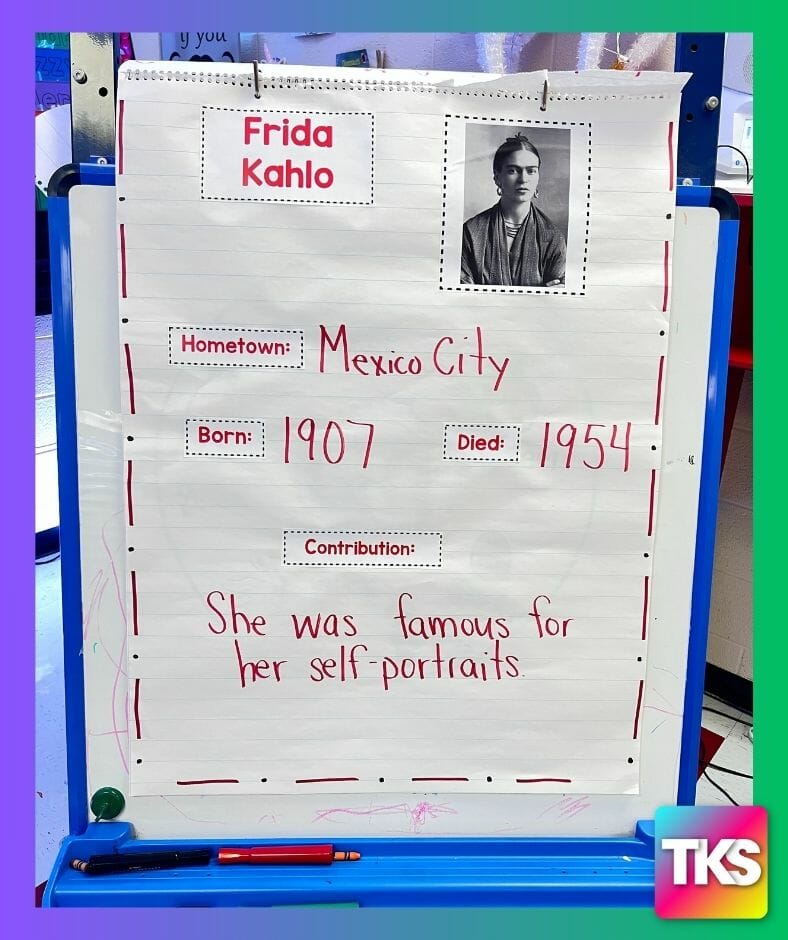 y you
Frida
Kahlo
Hometown: Mexico City
Born: 1907 Died: 1954
Contribution:
She was famous for
her self-portraits.
TKS